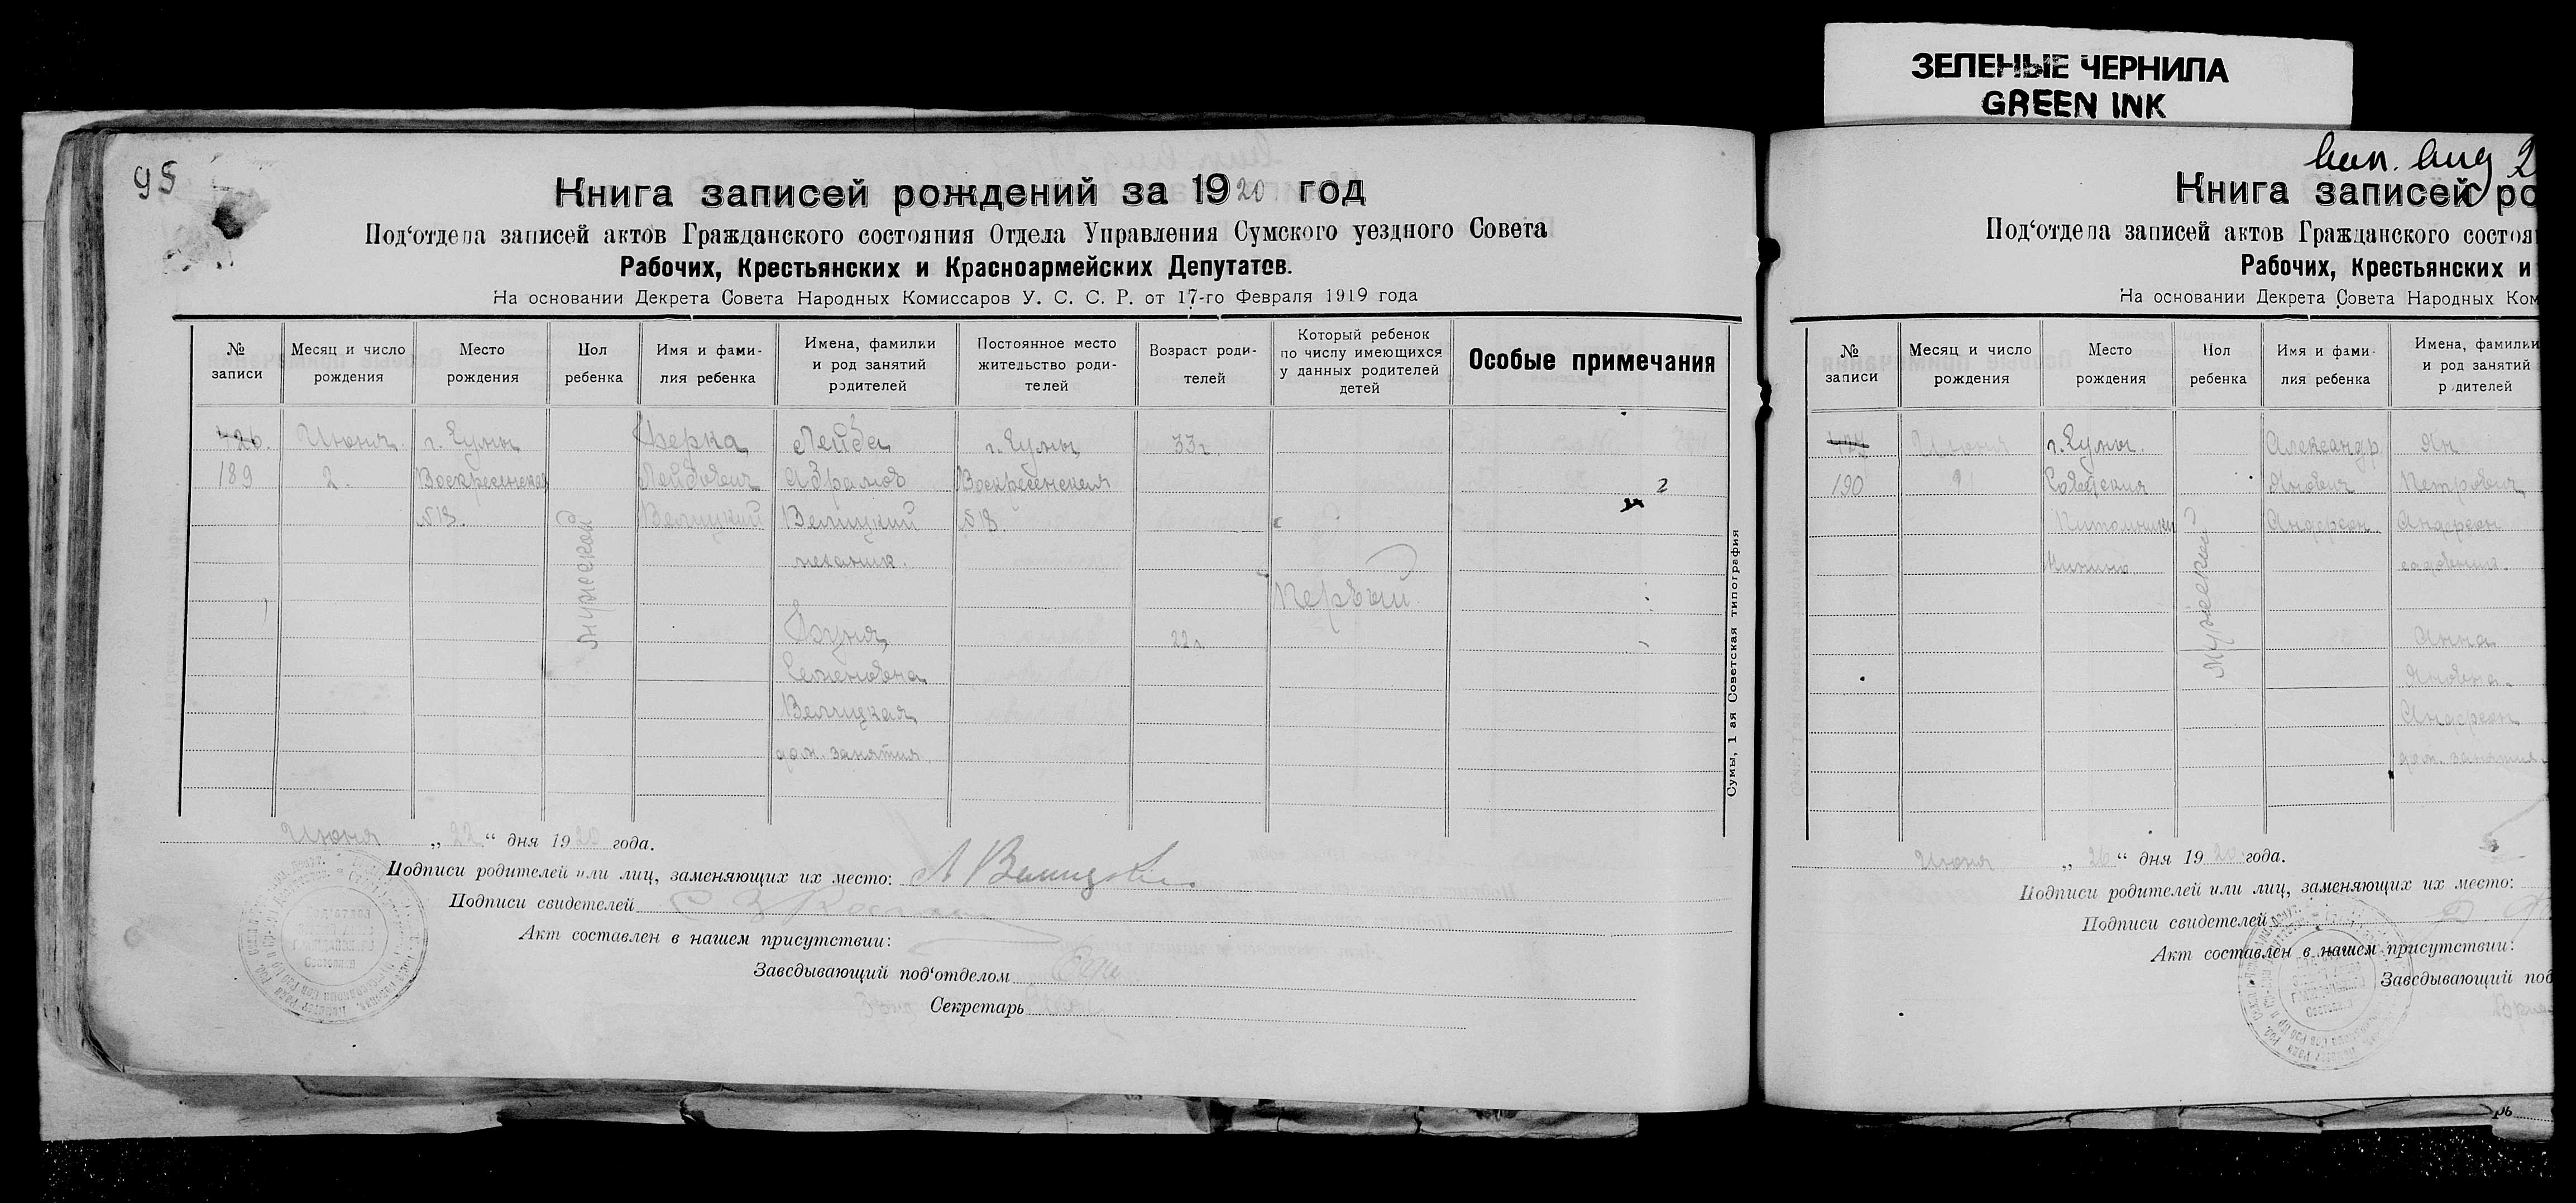 ЗЕЛЕНЫЕ ЧЕРНИЛА
GREEN INK
95
Книга записей рождений за 1920 год
Под‘отдела записей актов Гражданского состояния Отдела Управления Сумского уездного Совета
Рабочих, Крестьянских и Красноармейских Депутатов.
На основании Декрета Совета Народных Комиссаров У. С. С. Р. от 17-го Февраля 1919 года
№ записи
Месяц и число рождения
Место рождения
Пол ребенка
Имя и фамилия ребенка
Имена, фамилии и род занятий родителей
Постоянное место жительство родителей
Возраст родителей
Который ребенок по числу имеющихся у данных родителей детей
Особые примечания
426.
189
Июня
2.
г. Сумы
Воскресенская
№
мужской
Лейбович
Велицкий
Лейба
Абрамов
Велицкий
механик.
Семеновна
Велицкая
дом. занятия.
г. Сумы
Воскресенская
№
33 г.
22 г.
Первый
Сумы, 1 ая Советская типография
Июня „ 22 “ дня 1920 года.
Подписи родителей или лиц, заменяющих их место:
Подписи свидетелей
Акт составлен в нашем присутствии:
Заведывающий под‘отделом
Секретарь
Книга записей ро
Под‘отдела записей актов Гражданского состоя
Рабочих, Крестьянских и
На основании Декрета Совета Народных Ком
№ записи
Месяц и число рождения
Место рождения
Пол ребенка
Имя и фамилия ребенка
Имена, фамилии и род занятий родителей
190
Июня
г. Сумы.
мужской
Александр
Янович
Андерсон
Ян
Петрович
Андерсон
садовник.
Анна
Яновна
Андерсон
дом. занятия.
Июня „ 26 “ дня 1920 года.
Подписи родителей или лиц, заменяющих их место:
Подписи свидетелей
Акт составлен в нашем присутствии:
Заведывающий под